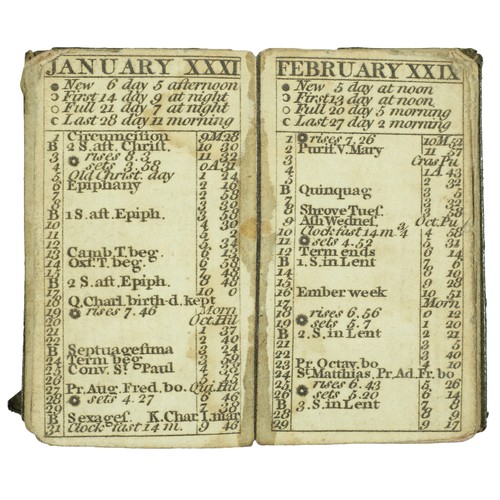 JANUARY XXXI
New 6 day 5 afternoon
First 14 day 9 at night
Full 21 day 7 at night
Last 28 day 11 morning
1 Circumcision 9 M 28
B 2 S. aft. Christ. 10 30
3 rises 8.3 11 32
4 sets 3.58 0 A 31
5 Old Christ. day 1 24
6 Epiphany 2 16
B 1 S. aft. Epiph.
10
11
12
13 Camb. T. beg. 6
14 Oxf. T. beg. 6 58
15 7 48
B 2 S. aft. Epiph. 8 48
17 10 0
18 Q. Charl. birth-d. kept
19 rises 7.46 Morn
20 Oct. Hil
21 1 37
22 2 40
B Septuagesima 3 34
24 Term beg.
25 Conv. St Paul 4
26 5 38
27 Pr. Aug. Fred. bo. Qui. Hil
28 sets 4.27 6 46
29 7 38
B Sexages. K. Char. I. mar
31 Clock fast 14 m. 9 46
FEBRUARY XXIX
New 5 day at noon
First 13 day at noon
Full 20 day 5 morning
Last 27 day 2 morning
1 rises 7.26 10 M 52
2 Purif. V. Mary 11 37
3 Cras Pu
4 1 A. 43
5 2 32
B Quinquag.
7
8 Shrove Tues. 3 58
9 Ash Wednes. Oct. Pu
10 Clock fast 14 m 3/4 4 58
11 sets 4.52 5 31
12 Term ends 6 14
B 1. S. in Lent 7 6
14 8 10
15 9 28
16 Ember week 10 51
17 Morn
18 rises 6.56 0 12
19 sets 5.7 1 20
B 2. S. in Lent 2 11
21
22 3 40
23 Pr. Octav. bo 4 10
24 St Matthias. Pr. Ad. Fr. bo
25 rises 6.43 5 26
26 sets 5.20 6 14
B 3. S. in Lent 7 8
28 8 9
29 9 17